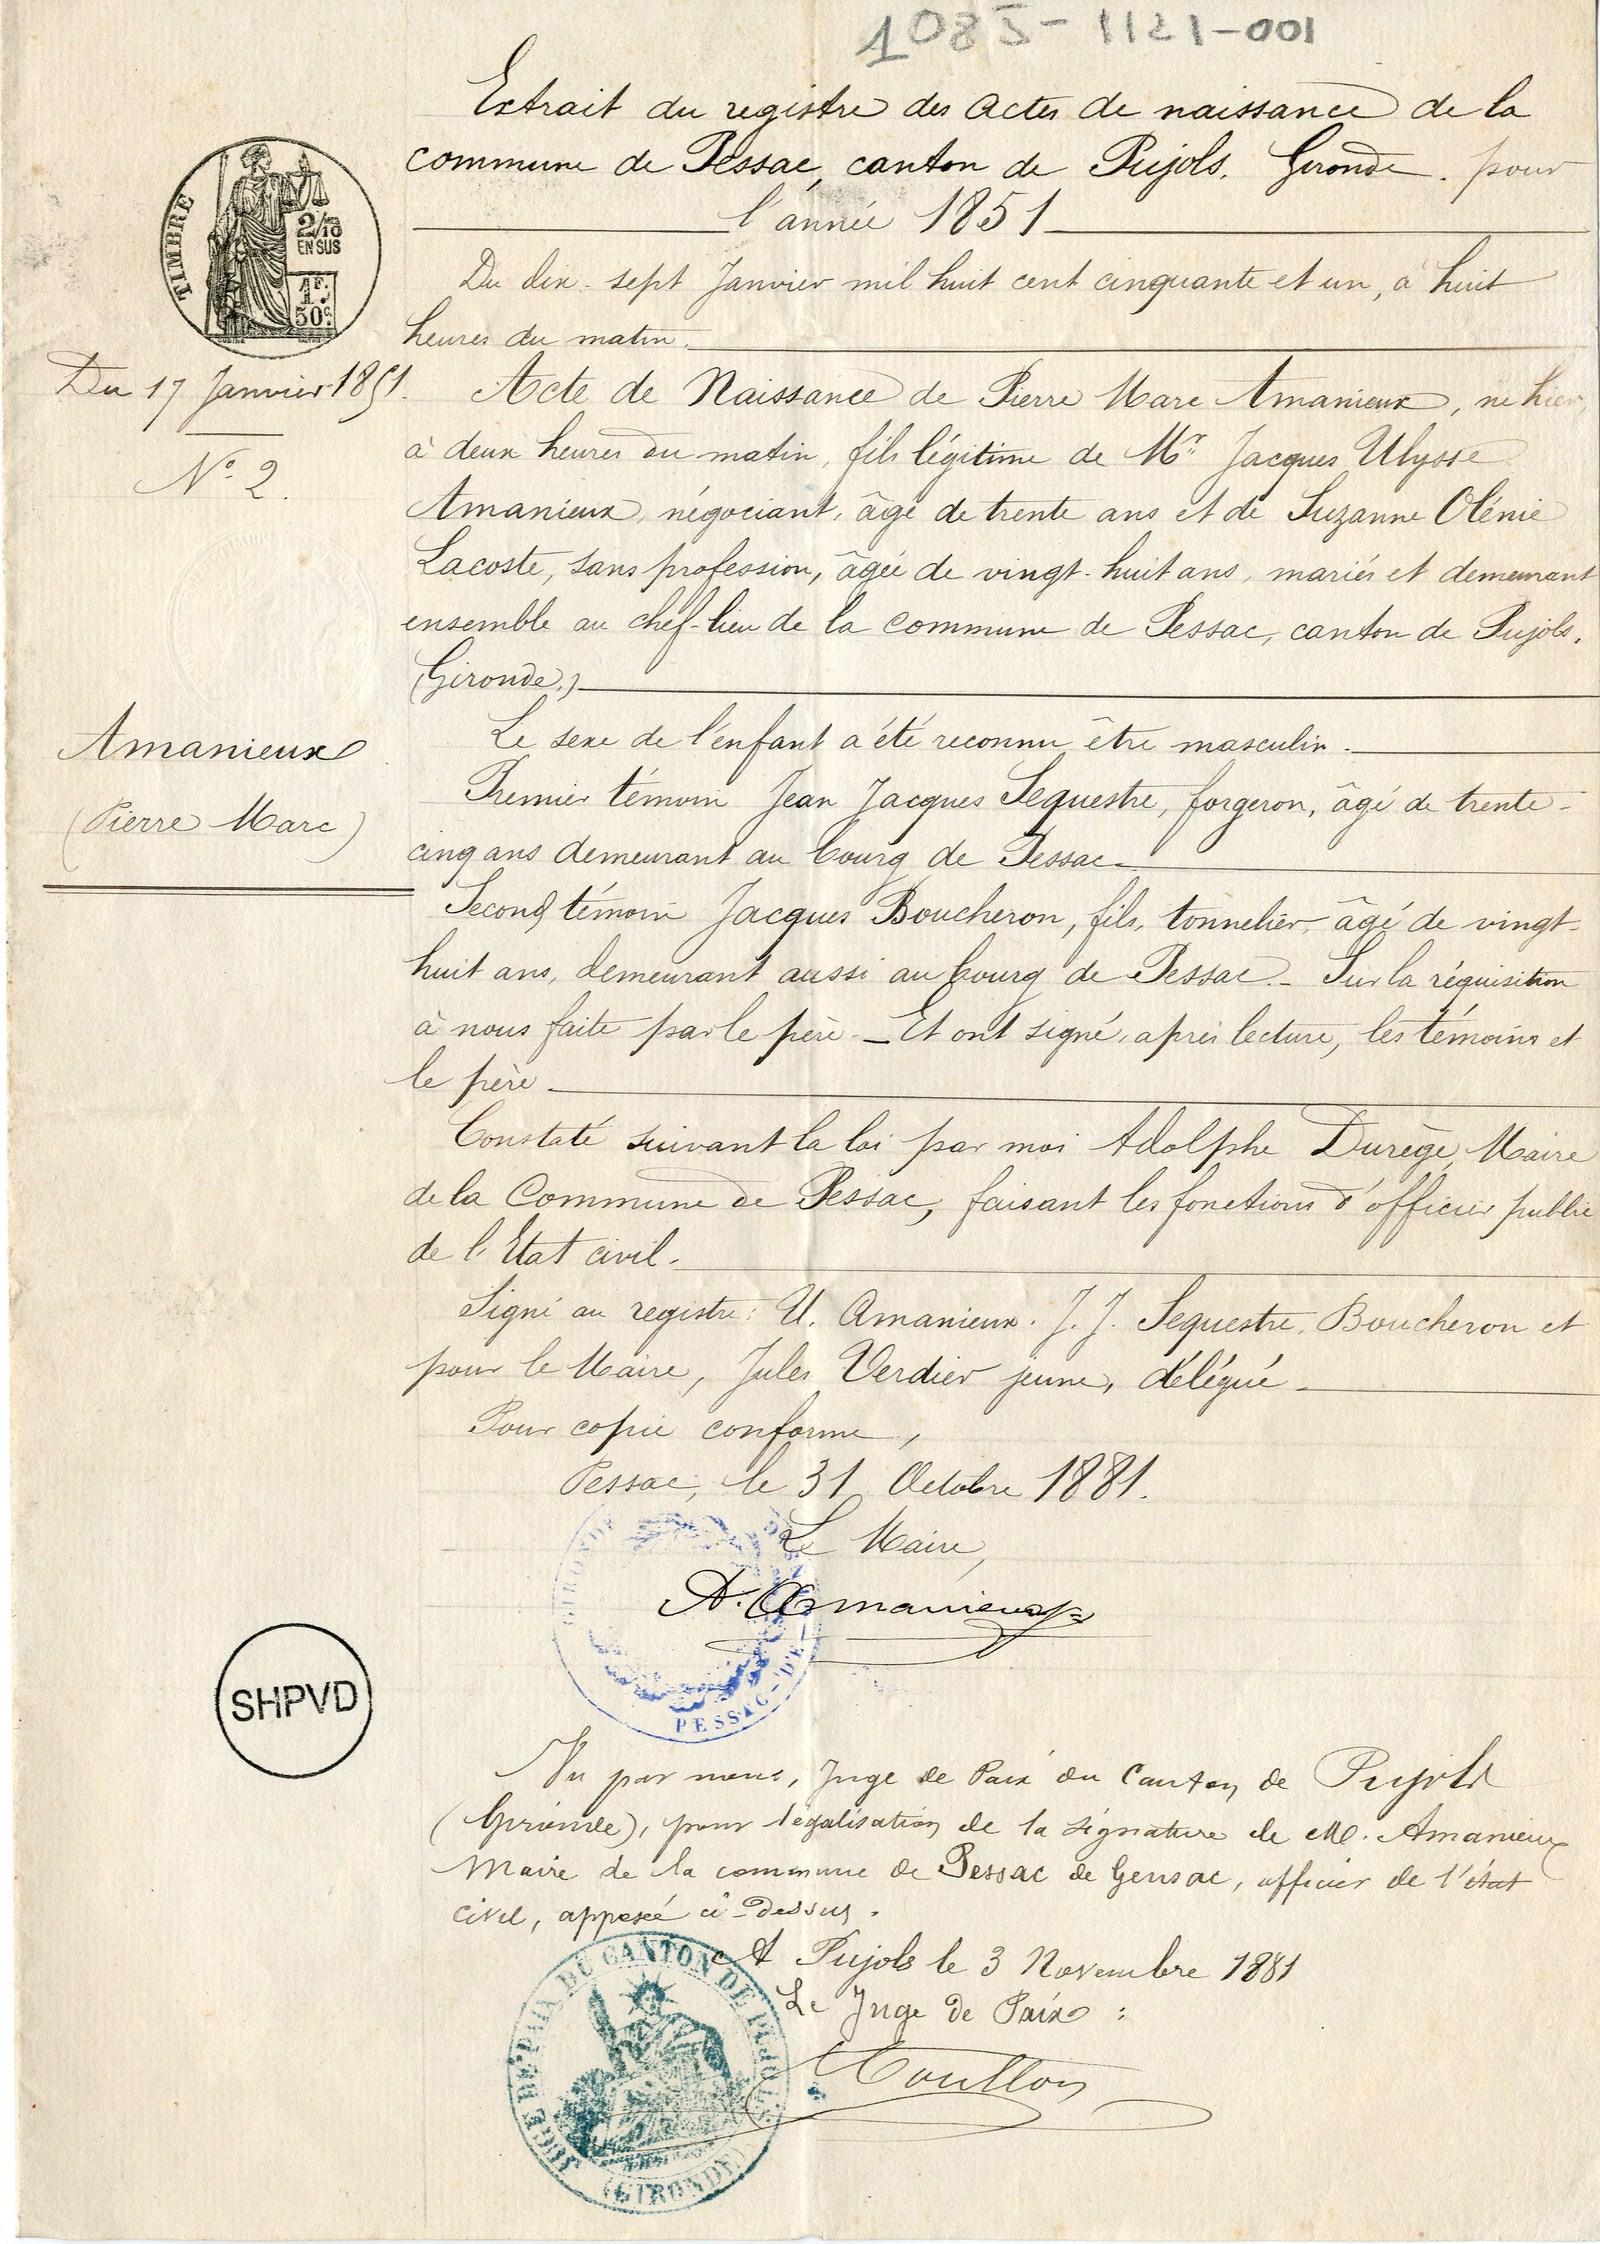 1085-1121-001
Extrait du registre des actes de naissance de la
commune de Pessac, canton de Pujols. Gironde. pour
l'année 1851
TIMBRE
2/10
EN SUS
1F.
50c
Du dix-sept Janvier mil huit cent cinquante et un, à huit
heures du matin.
Du 17 Janvier 1851.
N° 2.
Acte de Naissance de Pierre Marc Amanieux, né hier,
à deux heures du matin, fils légitime de Mr Jacques Ulysse
Amanieux, négociant, âgé de trente ans et de Suzanne Olénie
Lacoste, sans profession, âgée de vingt-huit ans, mariés et demeurant
ensemble au chef-lieu de la commune de Pessac, canton de Pujols.
(Gironde.)
Amanieux
(Pierre Marc)
Le sexe de l'enfant a été reconnu être masculin.
Premier témoin Jean Jacques Sequestre, forgeron, âgé de trente-
cinq ans demeurant au bourg de Pessac
Second témoin Jacques Boucheron, fils, tonnelier, âgé de vingt-
huit ans, demeurant aussi au bourg de Pessac. - Sur la réquisition
à nous faite par le père. - Et ont signé, après lecture, les témoins et
le père
Constaté suivant la loi par moi Adolphe Durège, Maire
de la Commune de Pessac, faisant les fonctions d'officier public
de l'Etat civil.
Signé au registre: U. Amanieux. J. J. Sequestre, Boucheron et
pour le Maire, Jules Verdier jeune, délégué
Pour copie conforme,
Pessac, le 31 Octobre 1881.
Le Maire,
A. Amanieux
GIRONDE
PESSAC-DE-
SHPVD
Vu par nous, Juge de Paix du Canton de Pujols
(Gironde), pour légalisation de la signature de M. Amanieux
Maire de la commune de Pessac de Gensac, officier de l'état
civil, apposée ci-dessus.
A Pujols le 3 Novembre 1881
Le Juge de Paix :
JUGE DE PAIX DU CANTON DE PUJOLS
(GIRONDE)